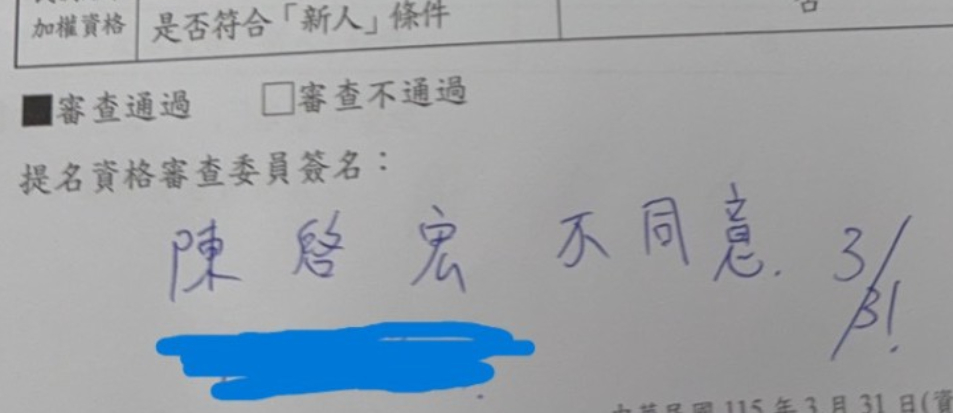 加權資格 是否符合「新人」條件 否
■審查通過 □審查不通過
提名資格審查委員簽名：
陳啓宏 不同意. 3/31.
中華民國 115 年 3 月 31 日(資